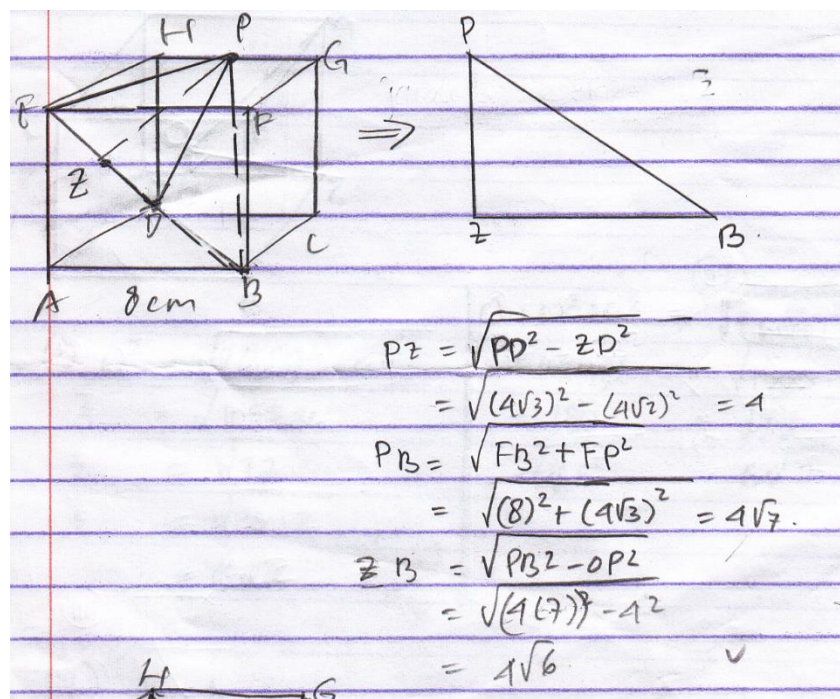 H P G
E F ⇒ P
Z
D C Z B.
A 8cm B
PZ = √(PD² - ZD²)
= √((4√3)² - (4√2)²) = 4
PB = √(FB² + FP²)
= √((8)² + (4√3)²) = 4√7.
ZB = √(PB² - OP²)
= √((4(7))² - 4²
= 4√6
H G